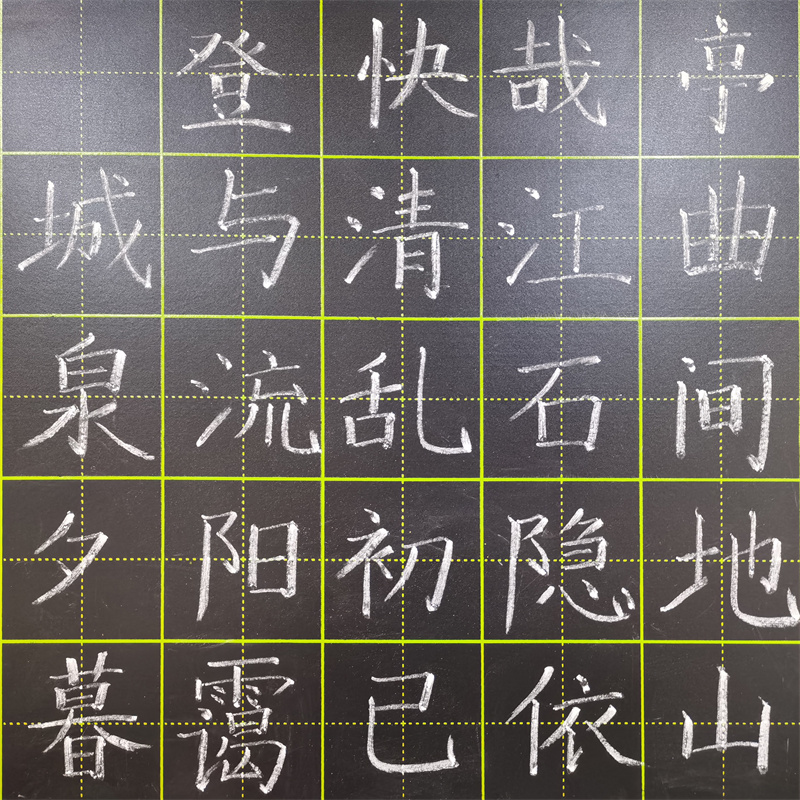 登快哉亭
城与清江曲
泉流乱石间
夕阳初隐地
暮霭已依山